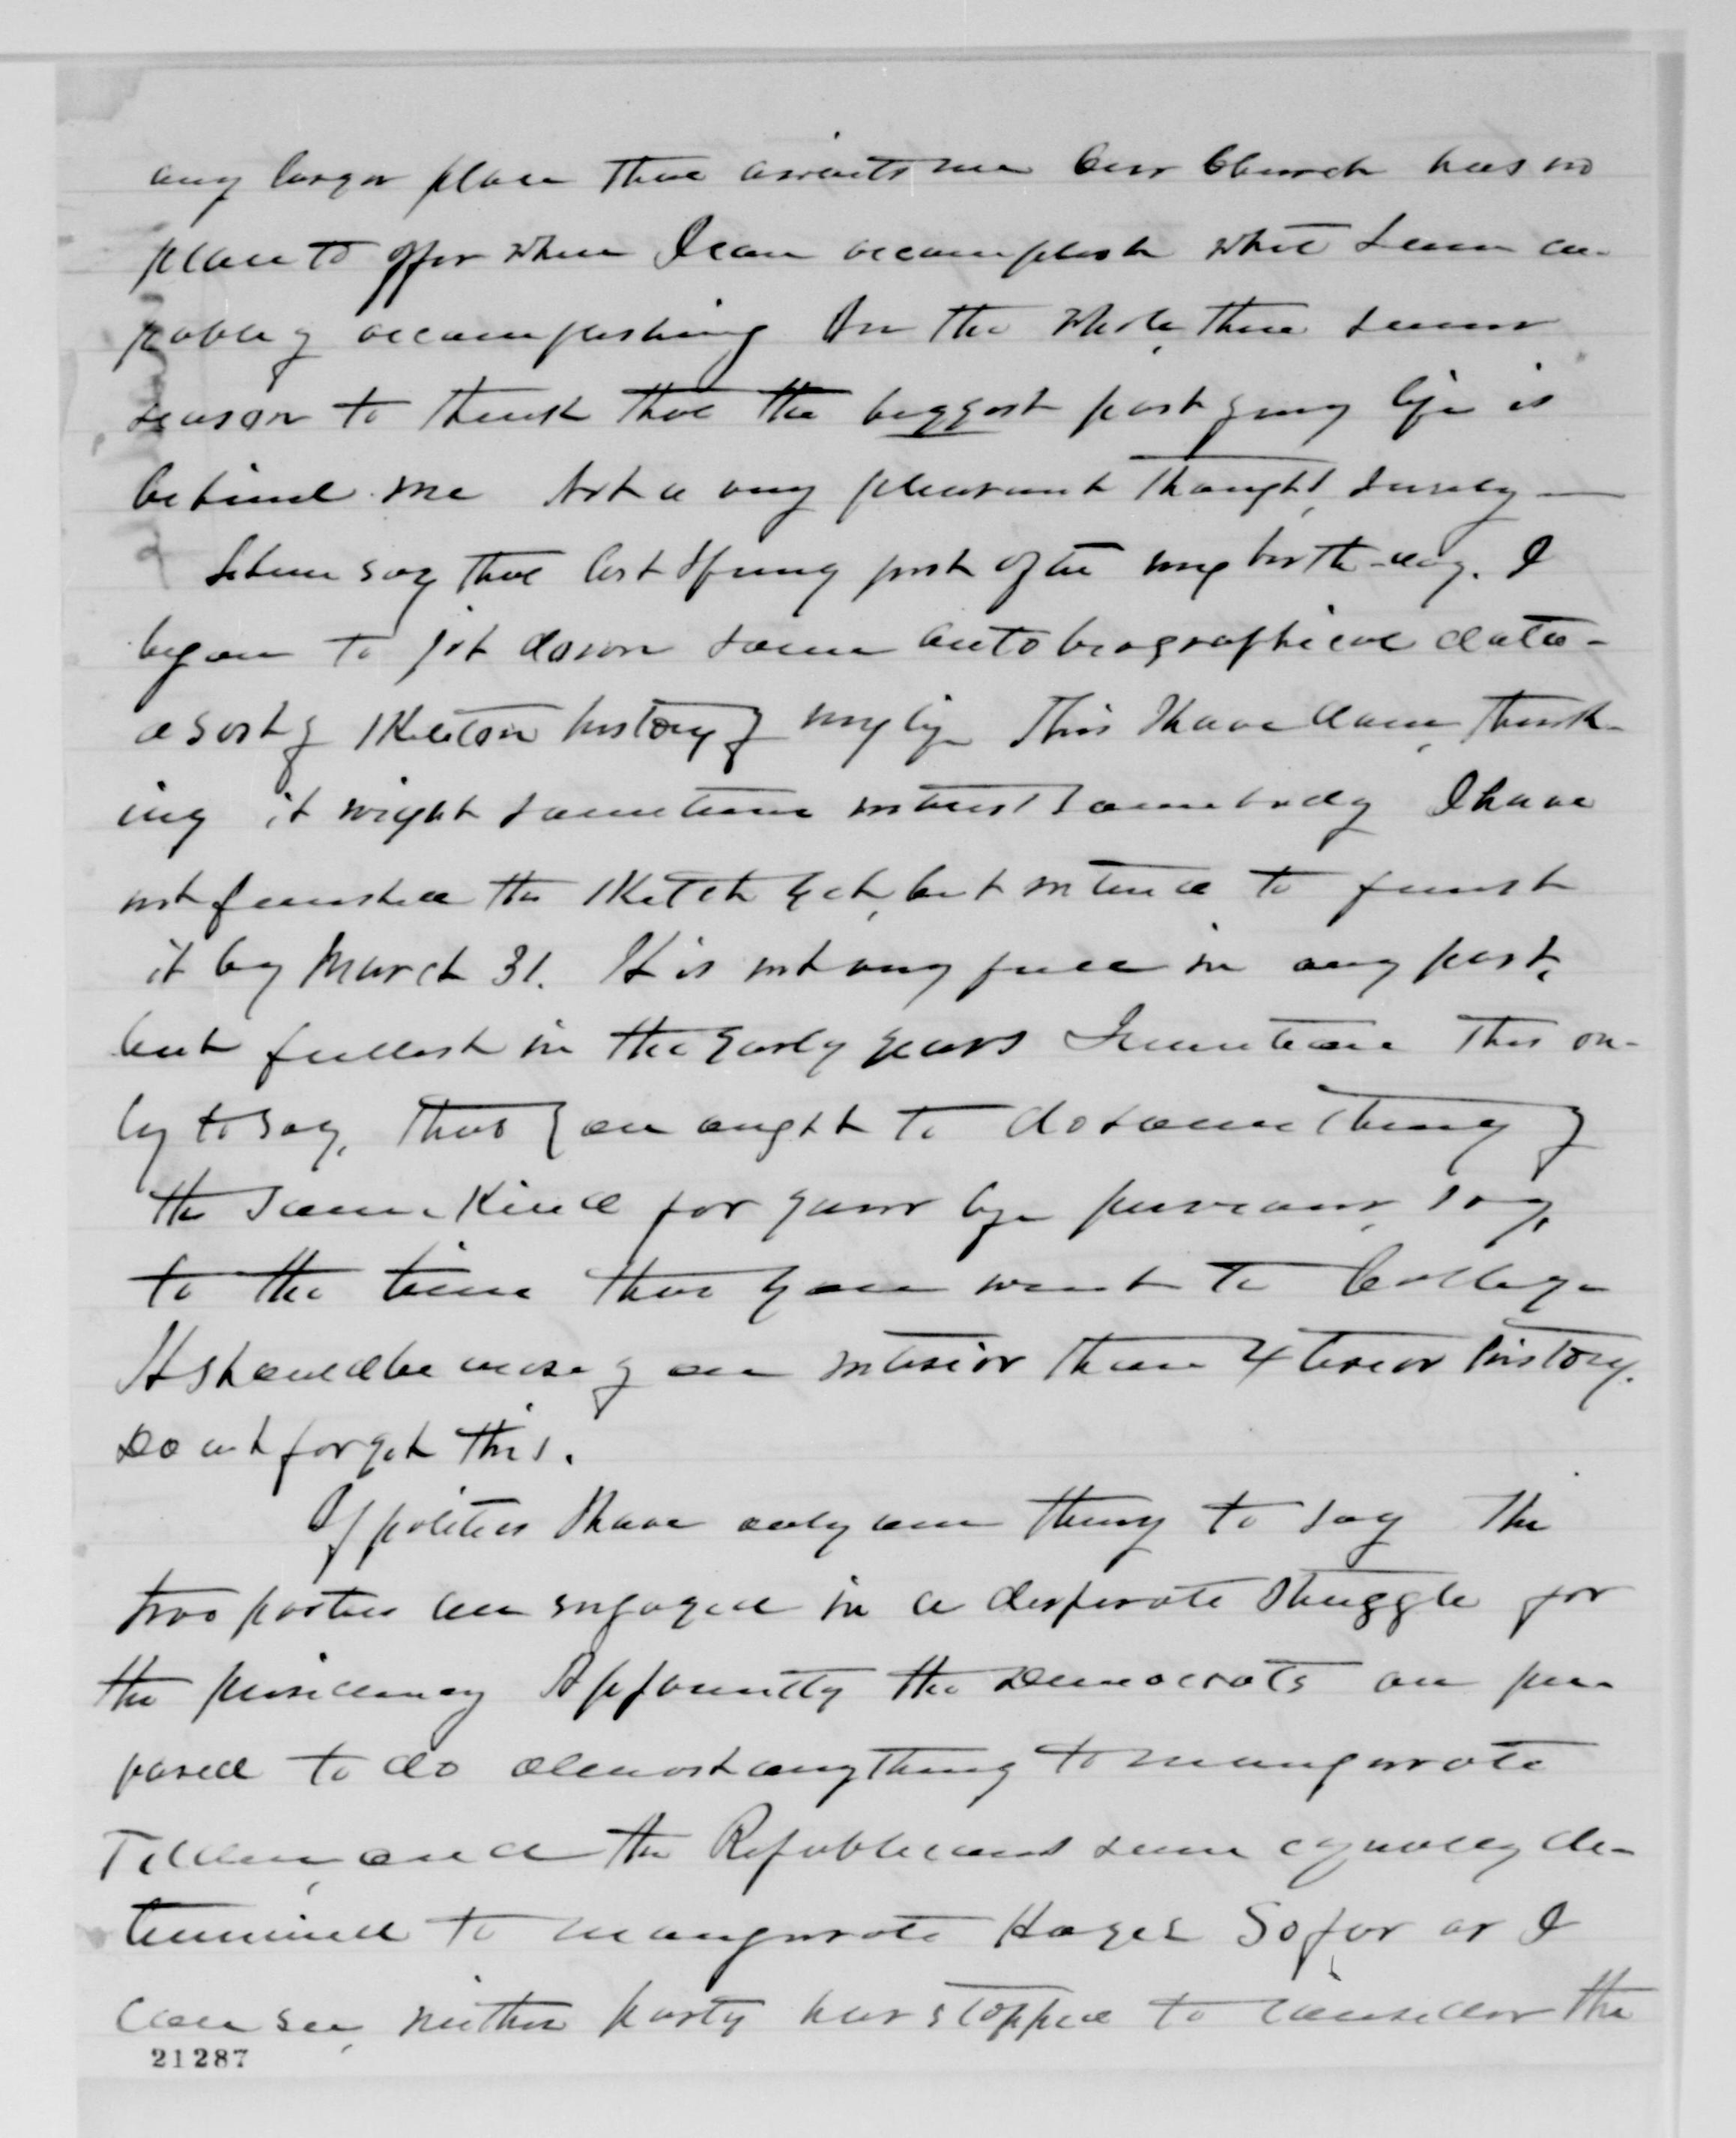 any larger place that awaits me Our Church has no
place to offer where I can accomplish what I am ca-
pable of accomplishing On the whole, there seems
reason to think that the biggest part of my life is
behind me Not a very pleasant thought, surely —
Let me say that last Spring just after my birth-day, I
began to jot down some autobiographical data -
a sort of skeleton history of my life This I have done, think-
ing it might sometime interest somebody I have
not finished the sketch yet, but intend to finish
it by March 31. It is not very full in any part,
but fullest in the early years I mention this on-
ly to say, that you ought to do something of
the same kind for your life previous, say,
to the time that you went to College
It should be more of an interior than exterior history.
Do not forget this.
Of politics I have only one thing to say The
two parties are engaged in a desperate struggle for
the presidency Apparently the Democrats are pre-
pared to do almost anything to inaugurate
Tilden, and the Republicans seem equally de-
termined to inaugurate Hayes So far as I
can see, neither party has stopped to consider the
21287